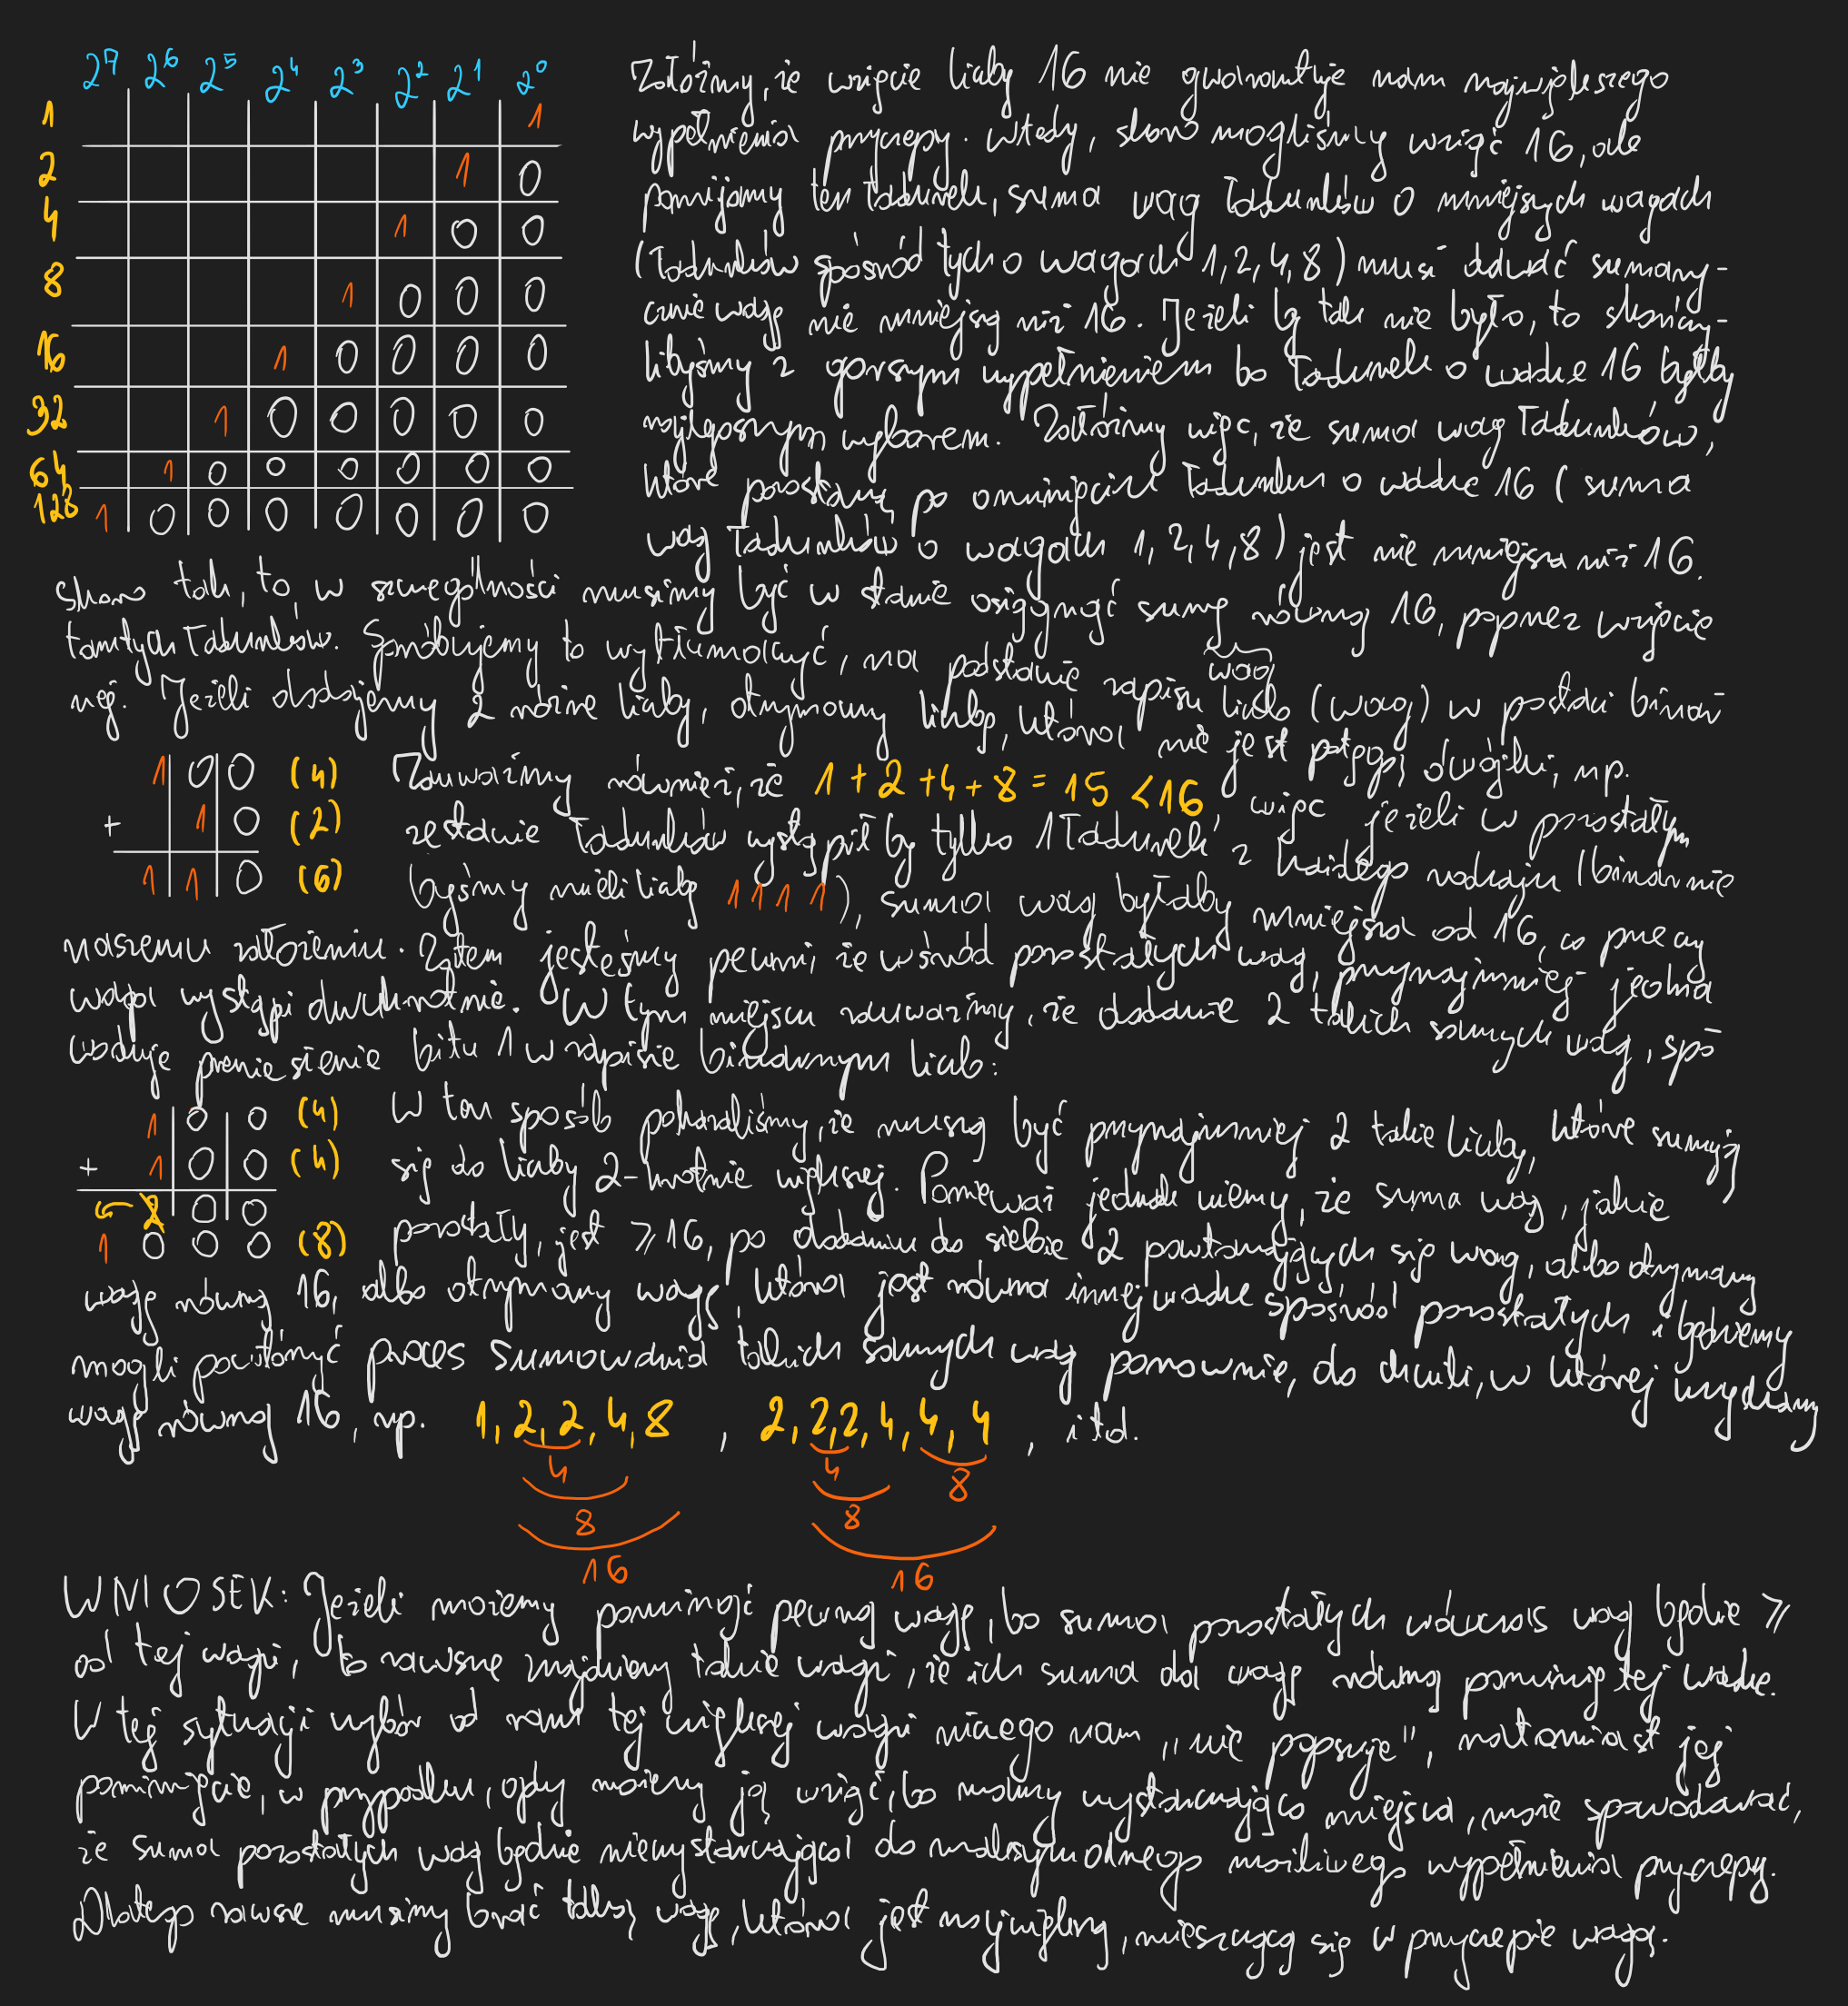 2⁷ 2⁶ 2⁵ 2⁴ 2³ 2² 2¹ 2⁰
1 1
2 1 0
4 1 0 0
8 1 0 0 0
16 1 0 0 0 0
32 1 0 0 0 0 0
64 1 0 0 0 0 0 0
128 1 0 0 0 0 0 0 0
Załóżmy, że wzięcie liczby 16 nie gwarantuje nam największego
wypełnienia przyczepy. Wtedy, skoro mogliśmy wziąć 16, ale
pomijamy ten ładunek, suma wag ładunków o mniejszych wagach
(ładunków spośród tych o wagach 1, 2, 4, 8) musi dawać sumary-
cznie wagę nie mniejszą niż 16. Jeżeli by tak nie było, to skończy-
libyśmy z gorszym wypełnieniem bo ładunek o wadze 16 byłby
najlepszym wyborem. Załóżmy więc, że suma wag ładunków,
które pozostaną po ominięciu ładunku o wadze 16 (suma
wag ładunków o wagach 1, 2, 4, 8) jest nie mniejsza niż 16.
Skoro tak, to, w szczególności musimy być w stanie osiągnąć sumę równą 16, poprzez wzięcie
tamtych ładunków. Spróbujemy to wytłumaczyć, na podstawie zapisu liczb (wag) w postaci binar
wag
nej. Jeżeli dodajemy 2 różne liczby, otrzymamy liczbę, która nie jest potęgą dwójki, np.
1 0 0 (4)
+ 1 0 (2)
1 1 0 (6)
Zauważmy również, że 1 + 2 + 4 + 8 = 15 < 16, więc jeżeli w pozostałym
zestawie ładunków wystąpił by tylko 1 ładunek z każdego rodzaju (binarnie
byśmy mieli liczbę 1 1 1 1), suma wag byłaby mniejsza od 16, co przeczy
naszemu założeniu. Zatem jesteśmy pewni, że wśród pozostałych wag, przynajmniej jedna
waga wystąpi dwukrotnie. W tym miejscu zauważmy, że dodanie 2 takich samych wag, spo
woduje przeniesienie bitu 1 w zapisie binarnym liczb:
1 0 0 (4)
+ 1 0 0 (4)
2 0 0
1 0 0 0 (8)
W ten sposób pokazaliśmy, że muszą być przynajmniej 2 takie liczby, które sumują
się do liczby 2-krotnie większej. Ponieważ jednak wiemy, że suma wag, jakie
pozostały, jest ⩾ 16, po dodaniu do siebie 2 powtarzających się wag, albo otrzymamy
wagę równą 16, albo otrzymamy wagę, która jest równa innej wadze spośród pozostałych i będziemy
mogli powtórzyć proces sumowania takich samych wag ponownie, do chwili, w której uzyskamy
wagę równą 16, np. 1, 2, 2, 4, 8 , 2, 2, 2, 4, 4, 4 , itd.
4 4 8
8 8
16 16
WNIOSEK: Jeżeli możemy pominąć pewną wagę, bo suma pozostałych wówczas wag będzie ⩾
od tej wagi, to zawsze znajdziemy takie wagi, że ich suma da wagę równą pominiętej wadze.
W tej sytuacji wybór od razu tej większej wagi niczego nam „nie popsuje", natomiast jej
pominięcie, w przypadku, gdy możemy ją wziąć, bo mamy wystarczająco miejsca, może spowodować,
że suma pozostałych wag będzie niewystarczająca do maksymalnego możliwego wypełnienia przyczepy.
Dlatego zawsze musimy brać taką wagę, która jest największą, mieszczącą się w przyczepie wagą.